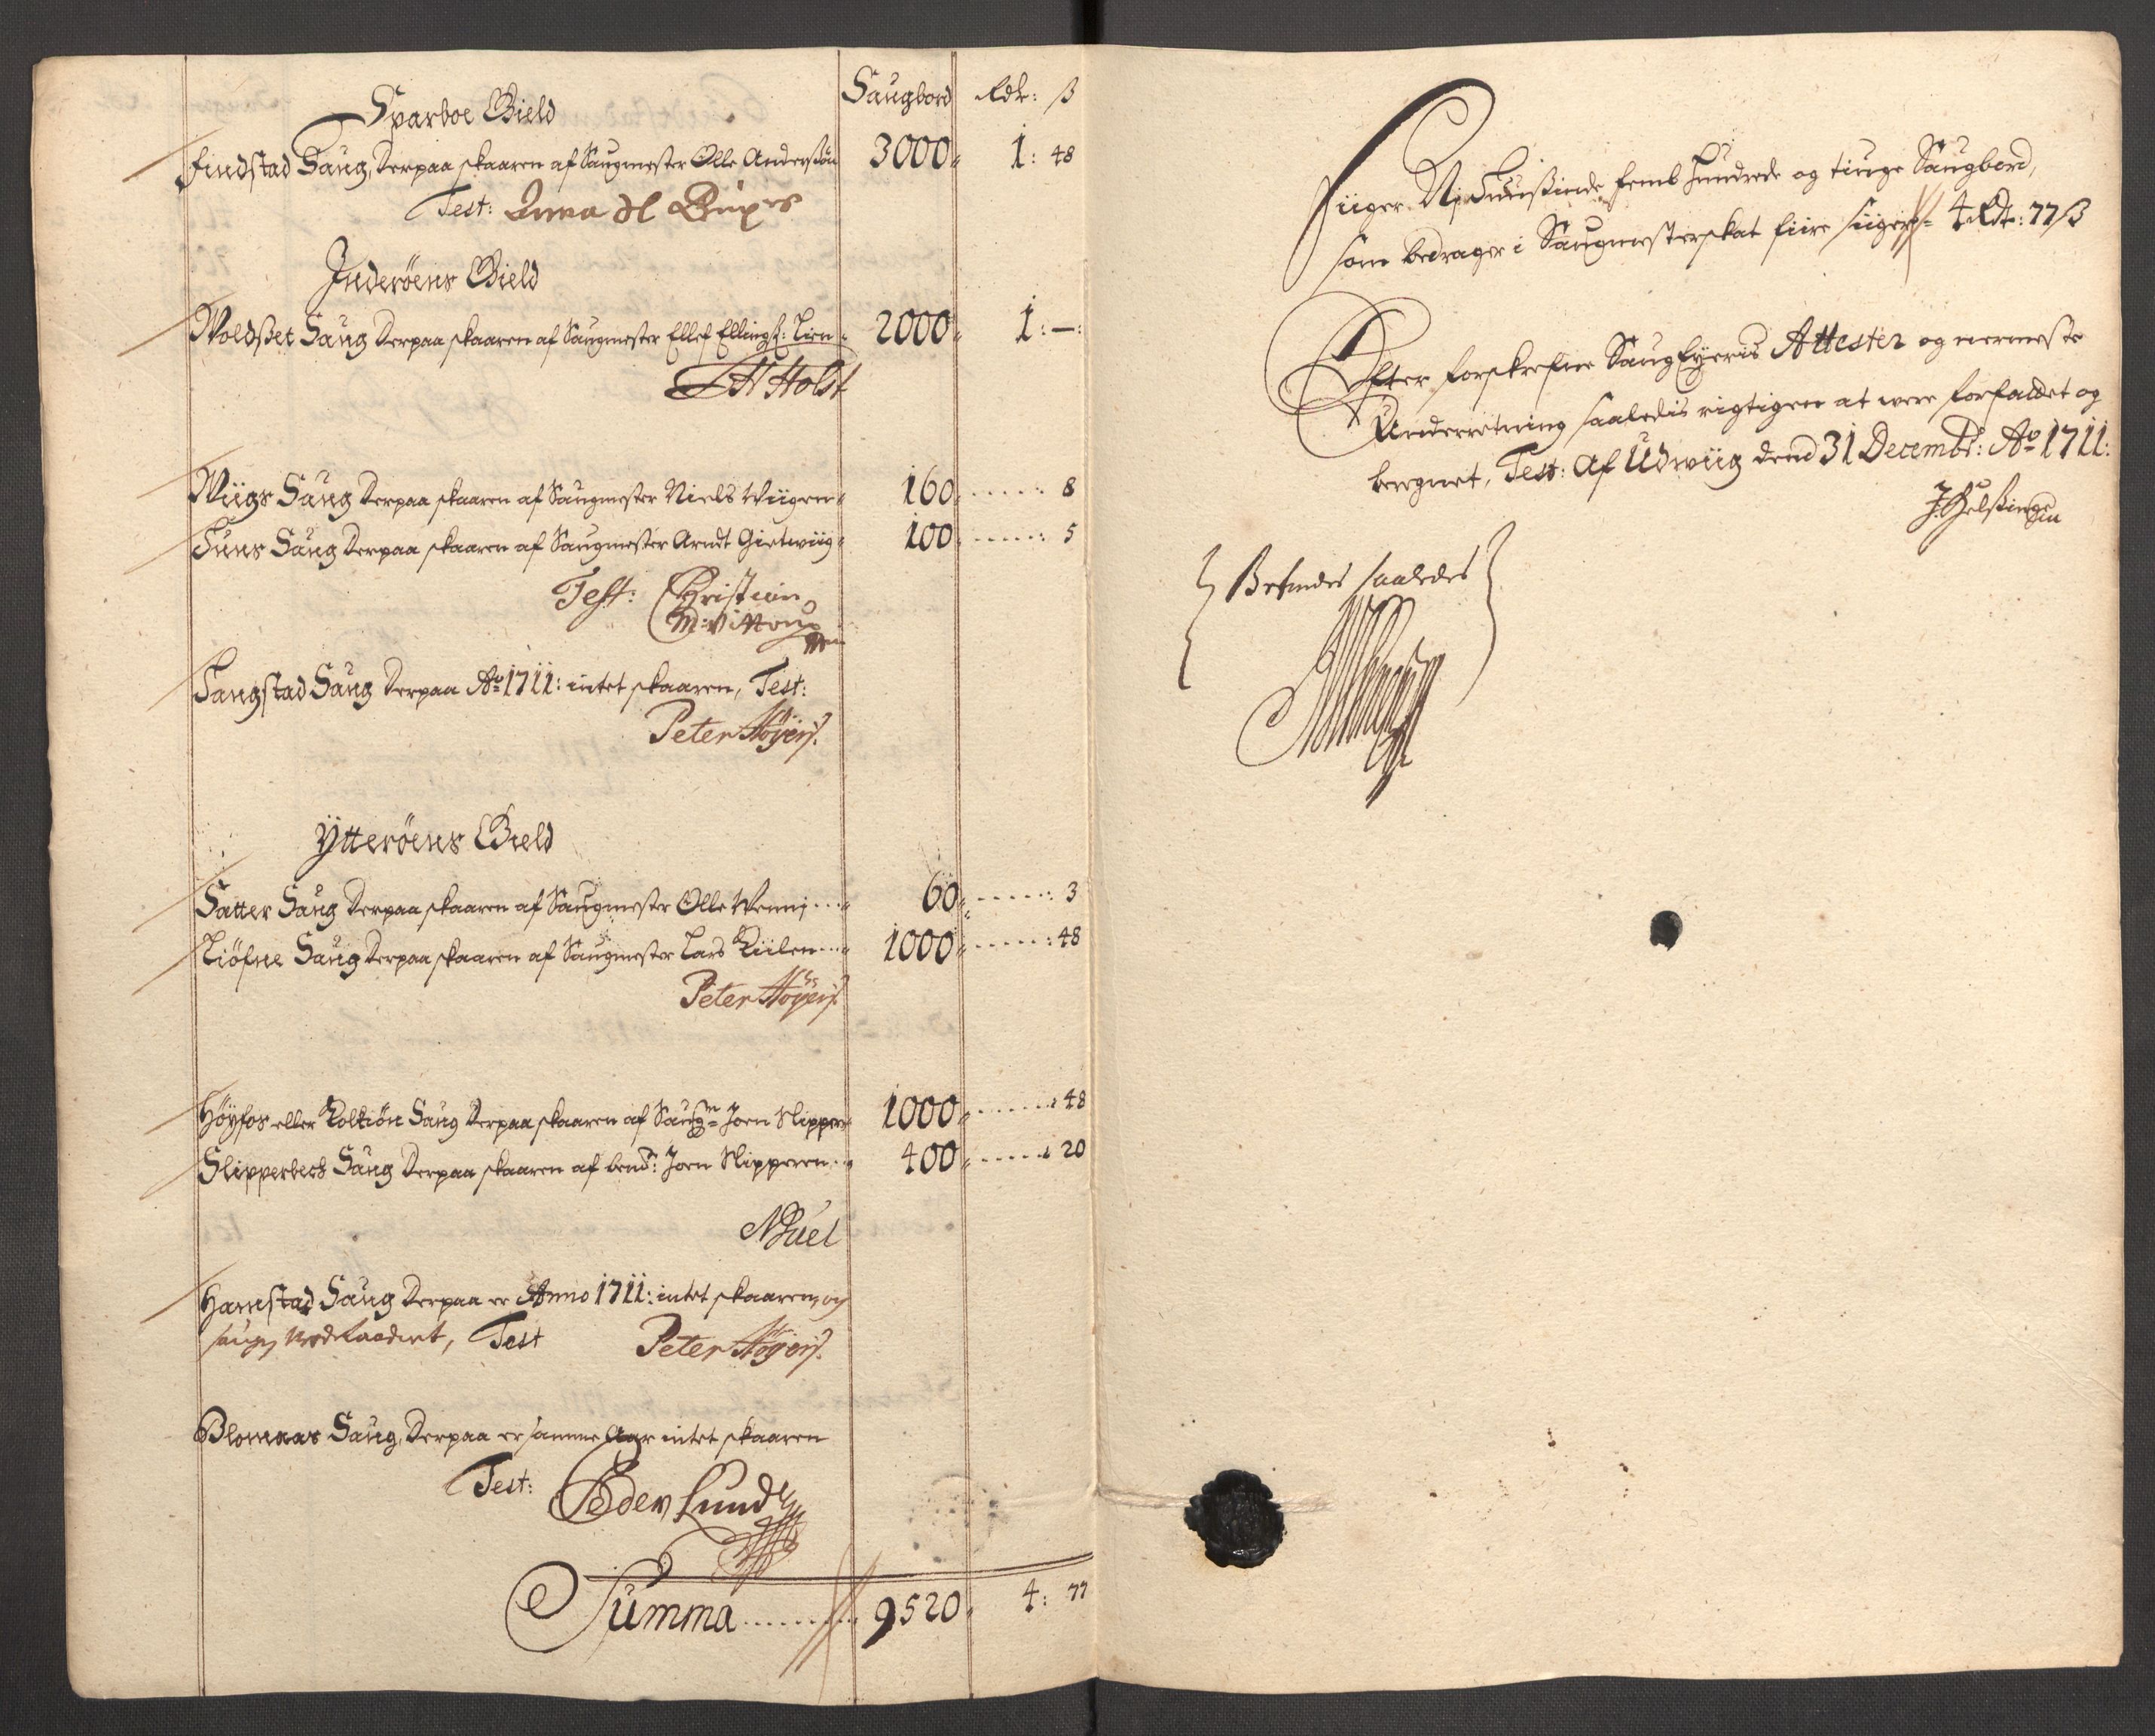 Saugbord Rdr: ß
Sparboe Gield
Findstad Saug, Derpaa skaaren af Saugmester Olle Anderssøn 3000 1: 48
Test: Anna Sl
Inderöens Gield
Woldset Saug Derpaa skaaren af Saugmester Ellef Ellings: Lien 2000 1: —:
Holst
Wiigs Saug Derpaa skaaren af Saugmester Niels Wiigen 160 8
Tuns Saug Derpaa skaaren af Saugmester Arndt Gietwiig 100 5
Test: Christian
Tangstad Saug Derpaa Ao 1711: intet skaaren, Test:
Peter Höyers.
Ytteröens Gield
Satter Saug Derpaa skaaren af Saugmester Olle Wenni 60 3
Liöfne Saug Derpaa skaaren af Saugmester Lars Kiilen 1000 48
Peter Höyers.
Höyfos eller Koltiön Saug Derpaa skaaren af Saugm Joen Slipper 1000 48
Slipperbech Saug Derpaa skaaren af bend: Joen Slipperen 400 20
NJuel
Hamstad Saug Derpaa er Anno 1711: intet skaaren, og
Saugen Test Peter Höyers.
Blomaas Saug, Derpaa er samme Aar intet skaaren
Test: Peder Lund
Summa 9520 4: 77
Siiger Ni Tuusinde femb Hundrede og tiuge Saugbord,
som bedrager i Saugmesterskat fiire siiger 4 Rdr: 77 ß
Efter forskrefne Saug Eyeris Attester og nermeste
Underretning saaledis rigtigen at were forfaldet og
beregnet, Test: Af Udwiig dend 31 Decembr: Ao 1711:
Befindes saaledes